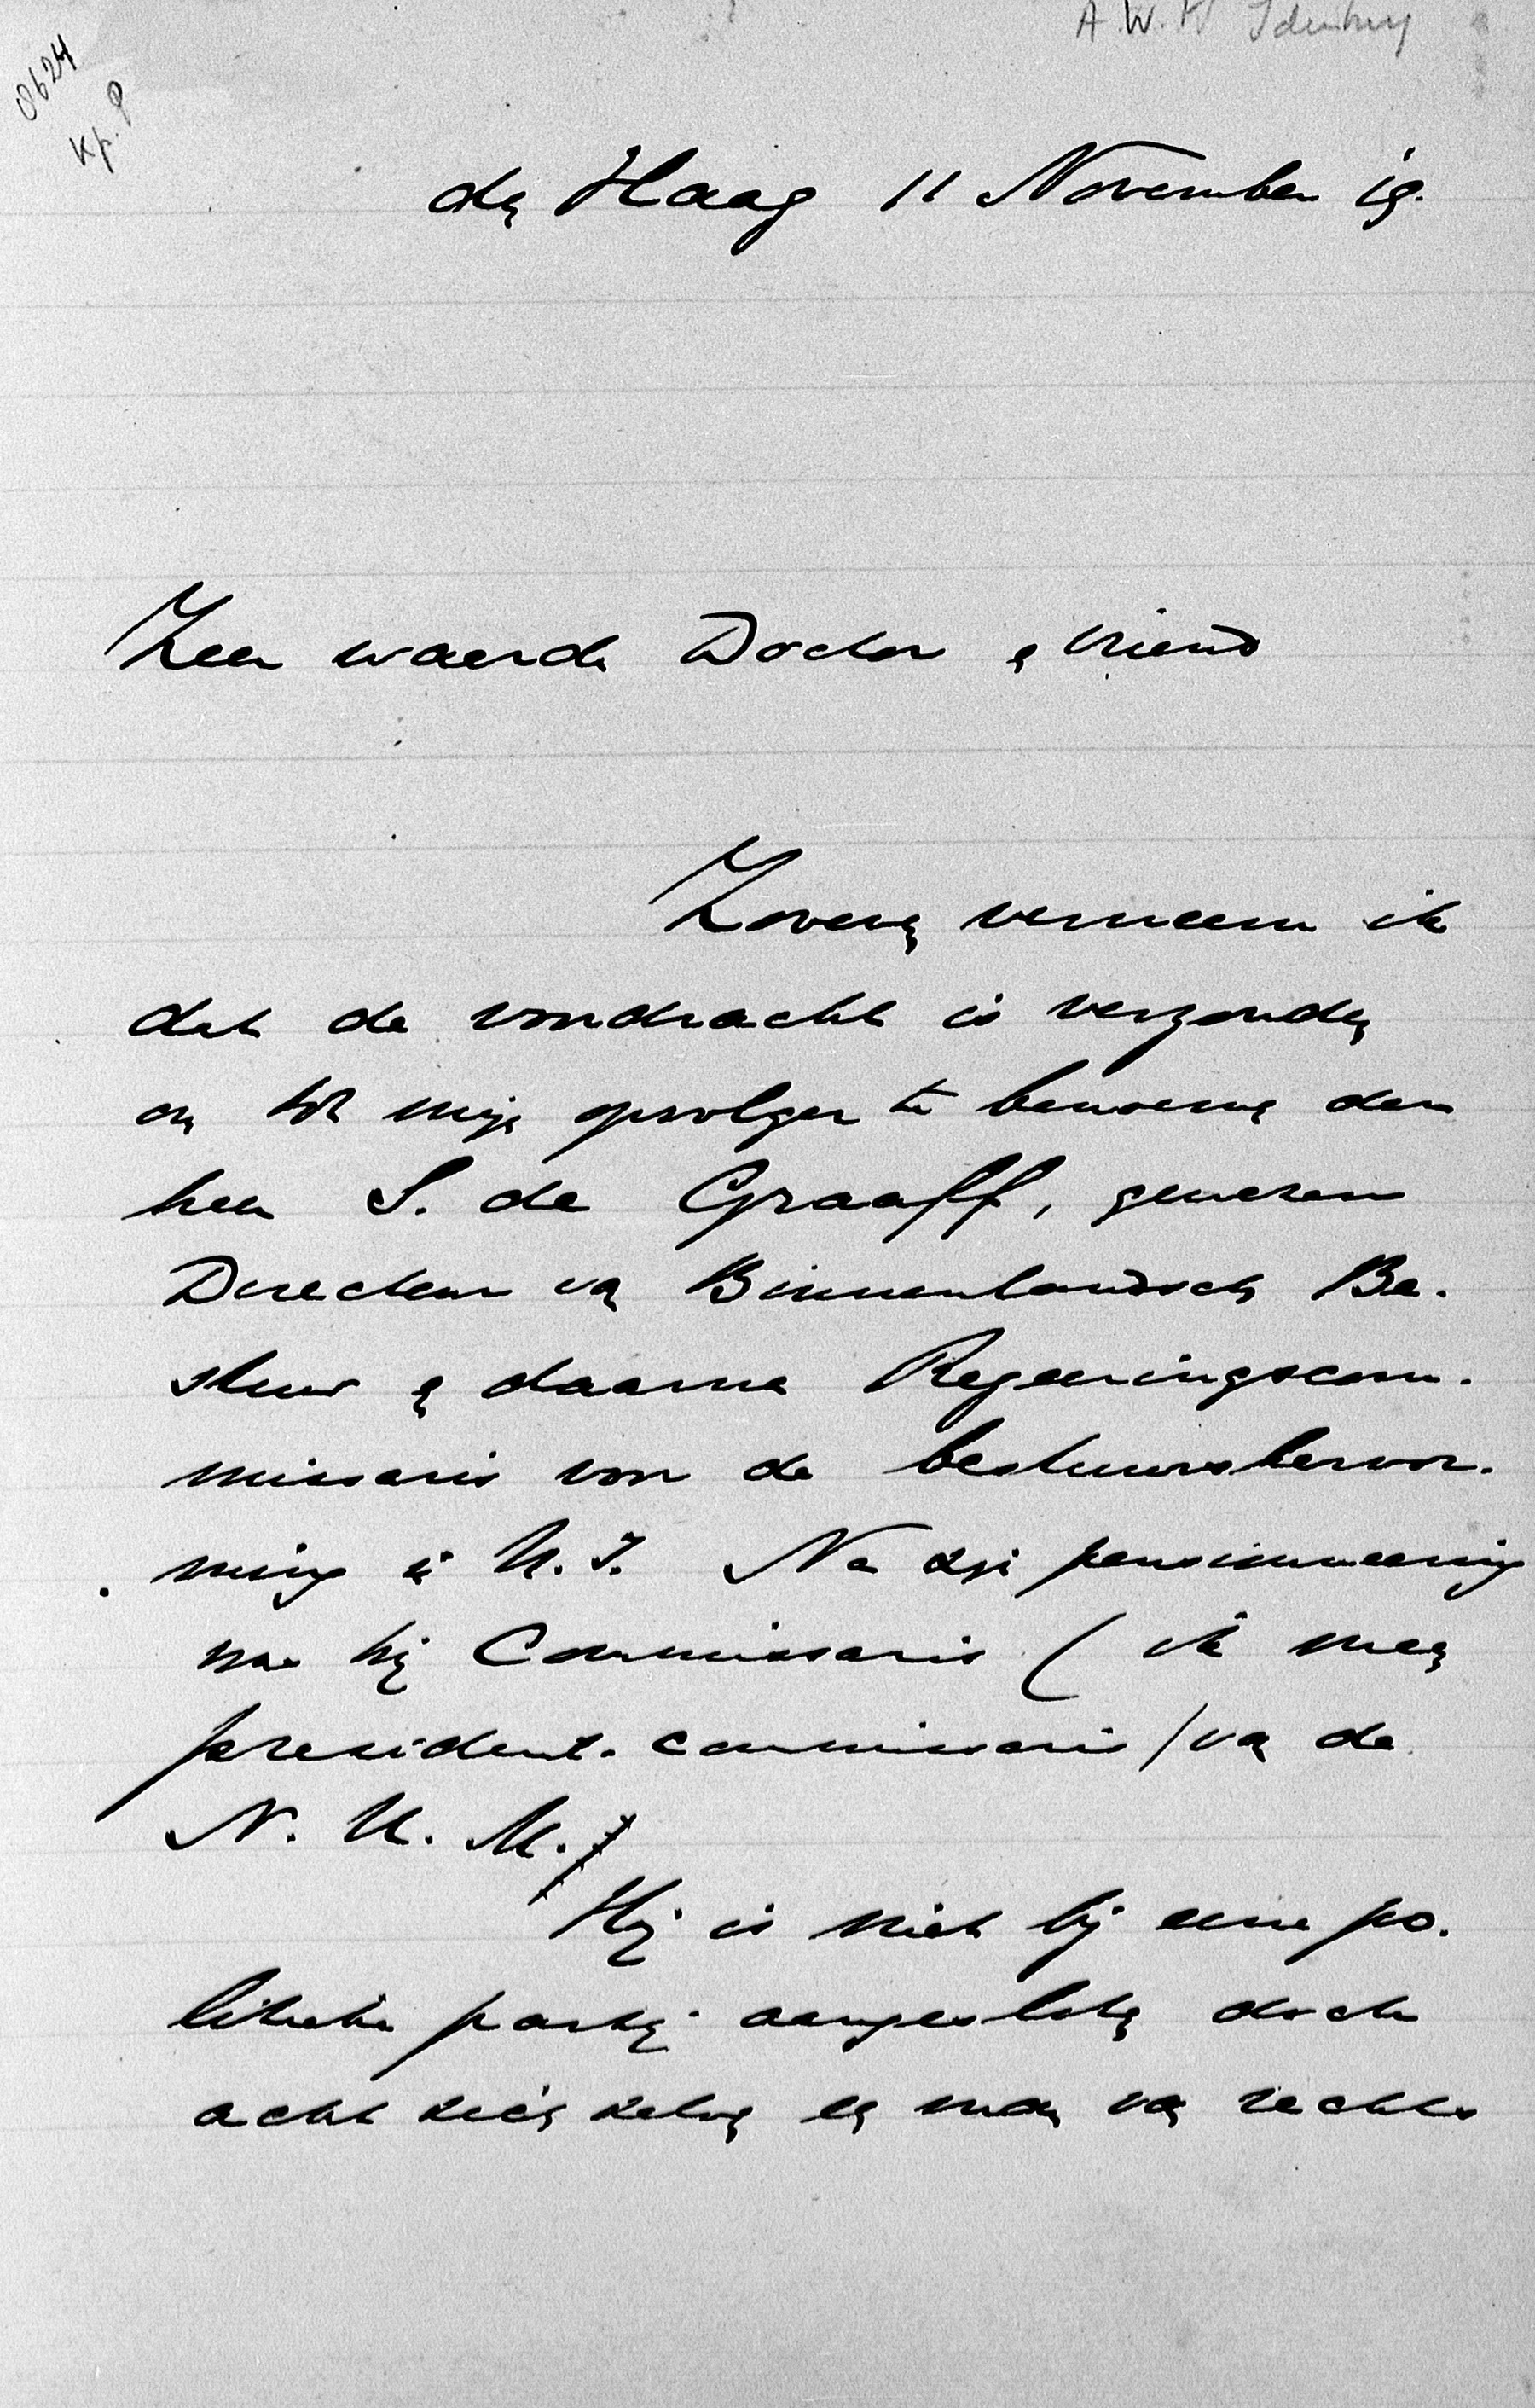 A.W.F Idenburg
8624
Kp. P
den Haag 11 November 19.
Zeer waarde Doctor en vriend
Zoveen verneem ik
dat de voordracht is verzonden
om tot mijn opvolger te benoemen den
heer S. de Graaff, gewezen
Directeur van Binnenlandsch Be-
stuur en daarna Regeeringscom-
missaris voor de bestuurshervor-
ming in N.I. Na zijn pensionneering
was hij Commissaris (ik meen
president-commissaris) van de
N. U. M.
Hij is niet bij eene po-
litieke partij aangesloten doch
acht zich zelven een man van rechts